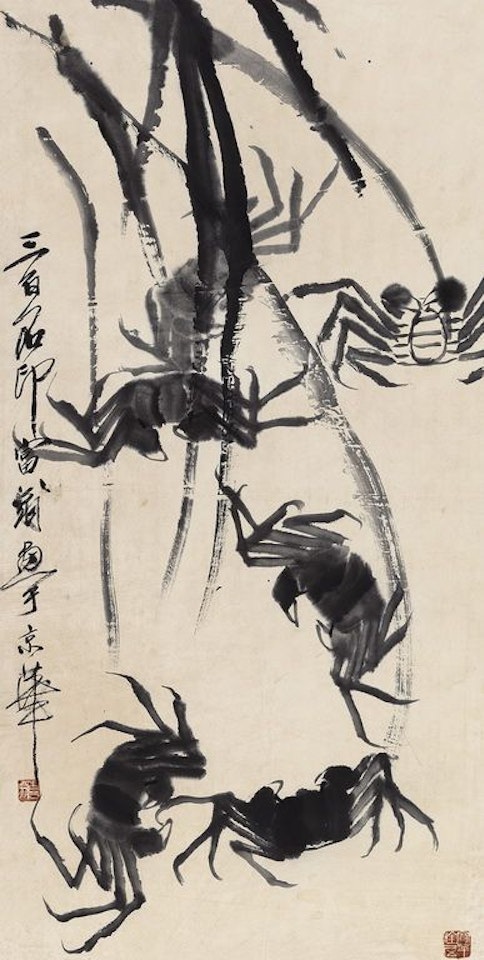 三百石印富翁畫于京華